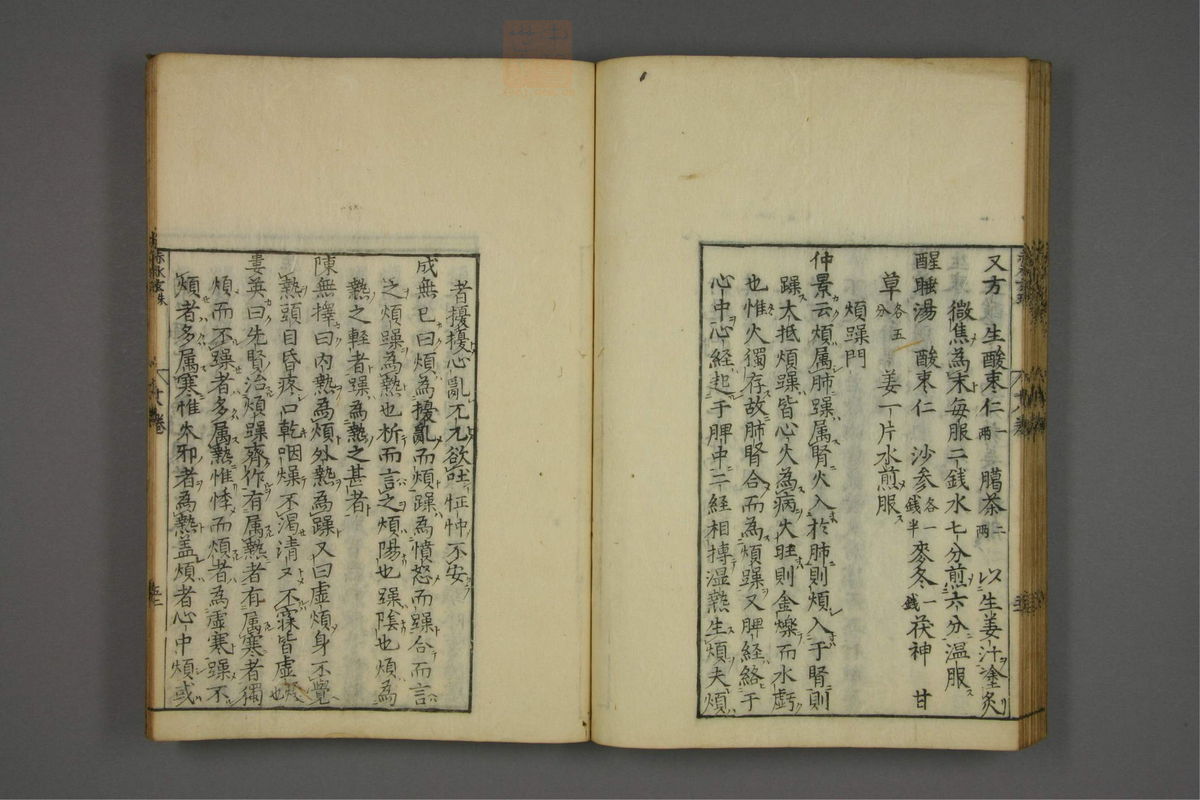 又方 生酸棗仁一両 臈茶二両 以生姜汁塗炙
微焦為末毎服二銭水七分煎六分温服
醒睡湯 酸棗仁 沙参各一銭半 麥冬一銭 茯神 甘
草各五分 姜一片水煎服
煩躁門
仲景云煩属肺躁属腎火入於肺則煩入于腎則
躁大抵煩躁皆心火為病火旺則金爍而水虧
也惟火獨存故肺腎合而為煩躁又脾経絡于
心中心経起于脾中二経相搏湿熱生煩夫煩
者擾擾心亂兀兀欲吐怔忡不安
成無已曰煩為擾亂而煩躁為憤怒而躁合而言
之煩躁為熱也析而言之煩陽也躁陰也煩為
熱之軽者躁為熱之甚者
陳無擇曰内熱為煩外熱為躁又曰虚煩身不覺
熱頭目昏疼口乾咽燥不渇清清不寐皆虚煩也
婁英曰先賢治煩躁齊作有属熱者有属寒者獨
煩而不躁者多属熱惟悸而煩者為虚寒躁不
煩者多属寒惟火邪者為熱蓋煩者心中煩或
赤水玄珠
十八巻